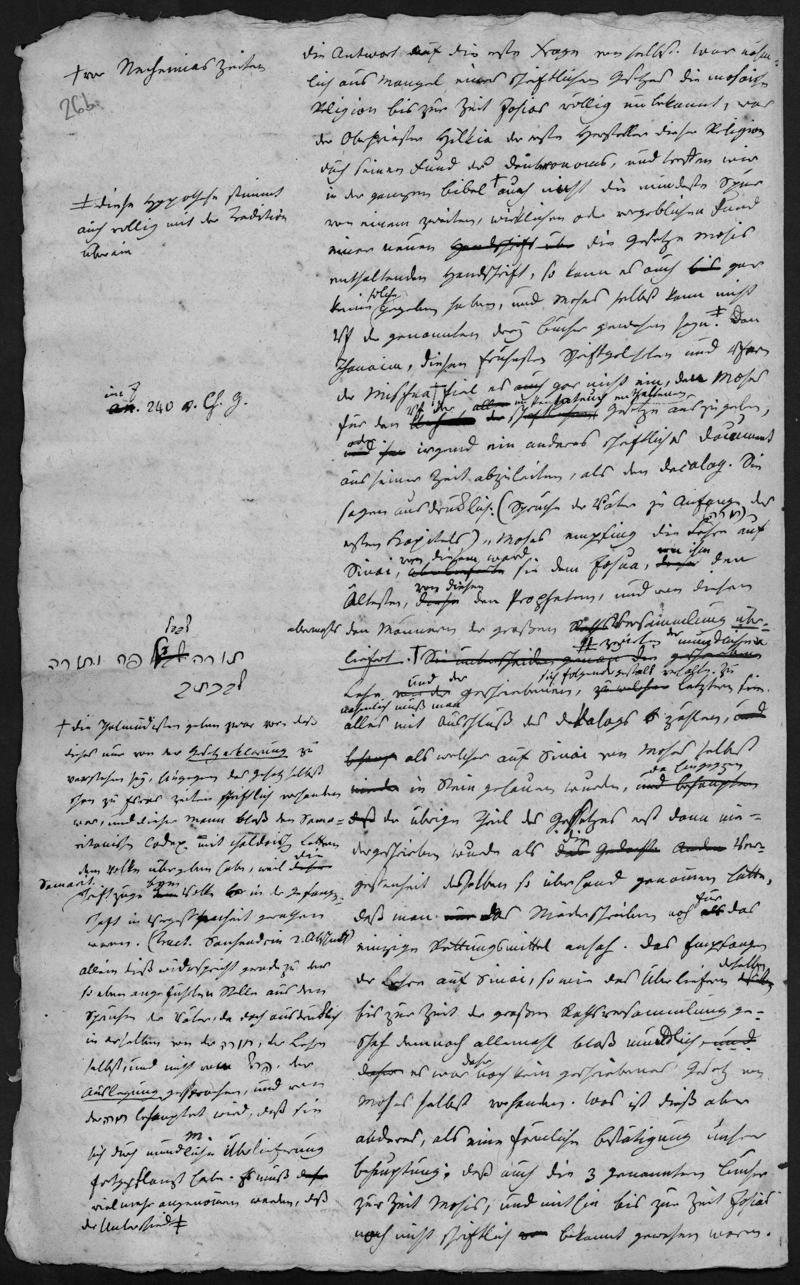 † vor Nehemias Zeiten
266.
‡ diese Hypothese stimmt
auch völlig mit der Tradition
überein
im J
240 n. Ch. G.
תורה שבעל פה ותורה
שבכתב
† die Thalmudisten geben zwar vor daß
dieses nur von der Gesetzerklärung zu
verstehen sey, hingegen das Gesetz selbst
schon zu Esras Zeiten schriftlich vorhanden
war, und dieser Mann bloß den Sama-
ritanischen Codex mit chaldäisch Lettern
dem Volke übergeben habe, weil die
Samarit. Schriftzüge beym Volke in der Gefangen-
schaft in Vergessenheit gerathen
waren. (Tract. Sanhedrin 2. Abschnitt)
allein dieß widerspricht geradezu der
so eben angeführten Stelle aus den
Sprüchen der Väter, da doch ausdrücklich
in derselben von der תורה, der Lehre
selbst, und nicht von der
Auslegung gesprochen, und von
der תורה behauptet wird, daß sie
sich durch mündliche Überlieferung
fortgepflanzt habe. Es muß
vielmehr angenommen werden, daß
der Unterschied ‡
die Antwort auf die erste Frage von selbst. War nähm-
lich aus Mangel eines schriftlichen Gesetzes die mosaische
Religion bis zur Zeit Josias völlig unbekannt, war
der Oberpriester Hilkia der erste Hersteller dieser Religion
durch seinen Fund des Deutronoms, und treffen wir
in der ganzen Bibel † auch nicht die mindeste Spur
von einem zweiten, wirklichen oder vorgeblichen Fund
einer neuen die Gesetze Mosis
enthaltenden Handschrift, so kann es auch gar
keine solche gegeben haben, und Moses selbst kann nicht
Vf der genannten drey Bücher gewesen seyn. ‡ Den
Thanaim, diesen frühesten Schriftgelehrten und Vfern
der Mischna † fiel es auch gar nicht ein, den Moses
für den Vf der im Pentateuch enthaltenen Gesetze auszugeben,
oder irgend ein anderes schriftliches Document
aus seiner Zeit abzuleiten, als den Decalog. Sie
sagen ausdrücklich: (Sprüche der Väter zu Anfange des
ersten Kapitels) „Moses empfing die Lehre (תורה) auf
Sinai, von diesem ward sie dem Josua, von ihm den
Ältesten, von diesen den Propheten, und von diesen
abermahls den Männern der großen Rathsversammlung über-
liefert. †
der mündlichen
Lehre und der geschriebenen, zu letztern hin.
nähmlich muß man
alles mit Ausschluß des Dekalogs zählen,
als welcher auf Sinai von Moses selbst
in Stein gehauen wurden, da hingegen
der übrige Theil des Gesetzes erst dann nie-
dergeschrieben wurde als die Ver-
gessenheit desselben so überhand genommen hatte,
daß man das Niederschreiben noch für das
einzige Rettungsmittel ansah. Das Empfangen
der Lehre auf Sinai, so wie das Überliefern derselben
bis zur Zeit der großen Rathsversammlung ge-
schah demnach allemahl bloß mündlich,
es war daher noch kein geschriebenes Gesetz von
Moses selbst vorhanden. Was ist dieß aber
anderes, als eine förmliche Bestätigung unserer
Behauptung, daß auch die 3 genannten Bücher
zur Zeit Mosis, und mithin bis zur Zeit Josias
noch nicht schriftlich bekannt gewesen waren.